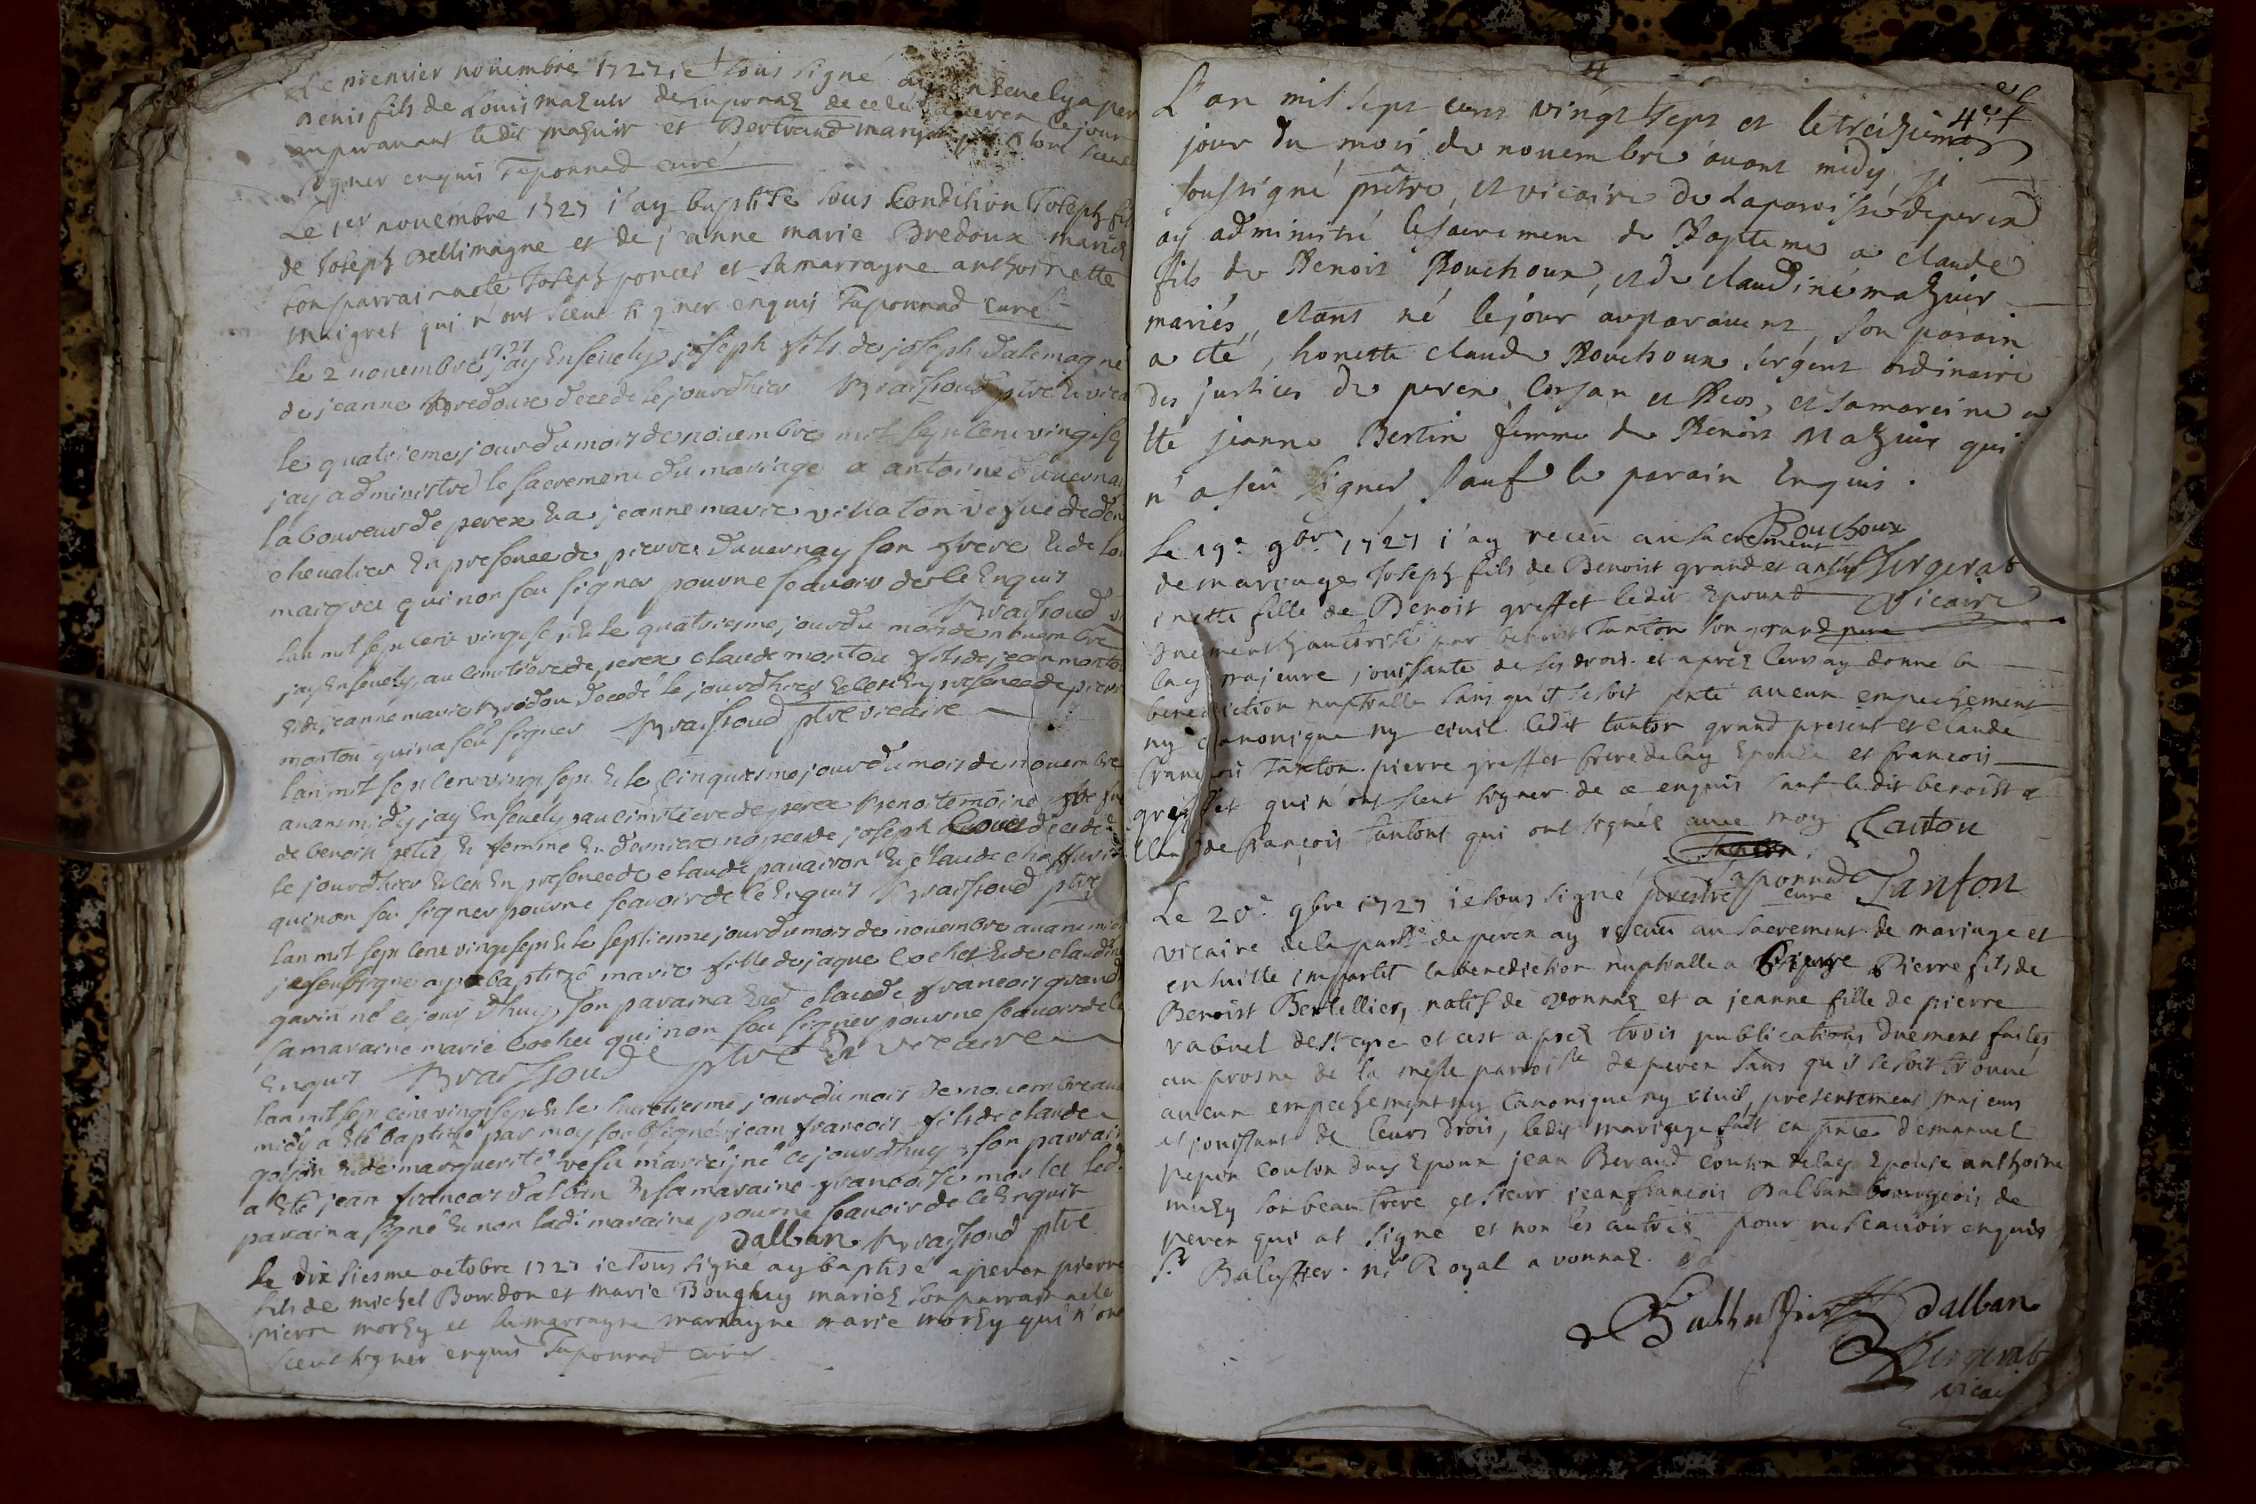 Le premier novembre 1727 je sous signé ay ensevely a per
Benist fils de Louis mazuir de Luponaz decedé a perex le jour
auparavant ledit mazuir et Bertrand
signer enquis Taponnad curé
Le 1er novembre 1727 i'ay baptisé sous condition Joseph fils
de Joseph Dellimagne et de jeanne marie Bredoux mariés
son parrain a esté Joseph poncet et sa marrayne anthoinette
maigret qui n'ont sceut signer enquis Taponnad curé
le 2 novembre 1727 jay Ensevely joseph fils de joseph dalemagne
de jeanne bredoux decede le jourdhier Braissoud ptre & vica
le quatrieme jour du mois de novembre mil sept cent vingt sep
jay administré le sacrement du mariage a antoine duverna
laboureur de perex & a jeanne marie villaton vefve de
chevalier En presence de pierre duvernay son frere & de
maigret qui non seu signer pour ne scavoir de ce Enquis
Braissoud
lan mil sept cent vingt sept & le quatriesme jour du mois de novembre
jay Ensevely au cimetiere de perex claude montou fils de jean montou
& de jeanne marie bredou decedé le jourdhier & ce En presence de pierre
montou qui na seu signer Braissoud ptre vicaire
lan mil sept cent vingt sept & le cinquiesme jour du mois de novembre
avant midy jay Ensevely au cimetiere de perex benoite moine
de benoit petit & femme En dernieres nopces de joseph decedé
le jourdhier & ce En presence de claude pavairon & claude
qui non seu signer pour ne scavoir de ce Enquis Braissoud ptre
lan mil sept cent vingt sept & le septiesme jour du mois de novembre avant midi
je soubsigné ay baptizé marie fille de jaque cochet & de claudine
gavin né ce jour dhuy, son parain a Eté claude francois grand
sa maraine marie cochet qui non seu signer pour ne scavoir de ce
Enquis Braissoud ptre & vicaire
lan mil sept cent vingt sept & le huictiesme jour du mois de novembre avant
midy a Eté baptizé par moy soubsigné jean francois fils de claude
gojon & de marguerite vesu mariés né ce jourdhuy, son parrain
a Eté jean francois dalban & sa maraine francoise morlet led.
parain a signé & non lad. maraine pour ne scavoir de ce Enquis
Dalban Braissoud ptre
Le dix siesme octobre 1727 ie sous signé ay baptisé a perex pierre
fils de michel Bourdon et marie Boughuy mariés son parrain a été
pierre morzy et sa marrayne marrayne marie morzy qui n'ont
sceut signer enquis Taponnad curé
L'an mil sept cens vingt sept et le treizieme
jour du mois de novembre avant midy, je
soussigné prêtre, et vicaire de la paroisse de perex
ay administré le sacrement de Baptême a claude
fils de Benoit Bouchoux, et de claudine mazuir
mariés, etant né le jour auparavent, son parain
a eté, honette claude Bouchoux sergent ordinaire
des justices de perex, Corsan et Beos, et sa mareine a
eté jeanne Bertin femme de Benoit Mazuir qui
n'a seü signer, sauf le parain enquis.
Bouchoux
Bergerat
vicaire
Le 19e 9bre 1727 i'ay receü au sacrement
de marriage Joseph fils de Benoist grand et anth
oinette fille de Benoit greffet ledit Epoux
duement authorisé par benoist Tanton son grand pere
lay majeure jouissante de ses drois et aprez leurs ay donné la
benediction nuptialle sans qu'il se soit jetté aucun empechement
ny canonique ny civil ledit tanton grand present et claude
francois Tanton, pierre greffet frere de lay Epouse et francois
greffet qui n'ont sceut signer de ce enquis sauf ledit benoist et
claude françois Tantont qui ont signéz avec moy Tanton
Taponnad curé Tanton
Le 20e 9bre 1727 ie sous signé prestre
vicaire de la parsse de perex ay receü au sacrement de mariage et
en suitte impartit la benediction nuptialle a Pierre fils de
Benoist Bertellier, natif de vonnaz et a jeanne fille de pierre
rabuel de st cyre et cest aprez trois publications duement faites
au prosne de la messe paroissle de perex sans qu'il se soit trouvé
aucun empechement ny canonique ny civil, presentement majeurs
et jouissant de leurs drois, ledit mariage fait en pnce d'emanuel
pepin couson dudt Epoux jean Beraud cousin de lay Epouse anthoine
muzy son beau frere et sieur jean francois Dalban bourgeois de
perex qui at signé et non les autres pour ne scavoir enquis
Sr Baluffier nre Royal a vonnaz.
Dalban
Bergerat
vicai